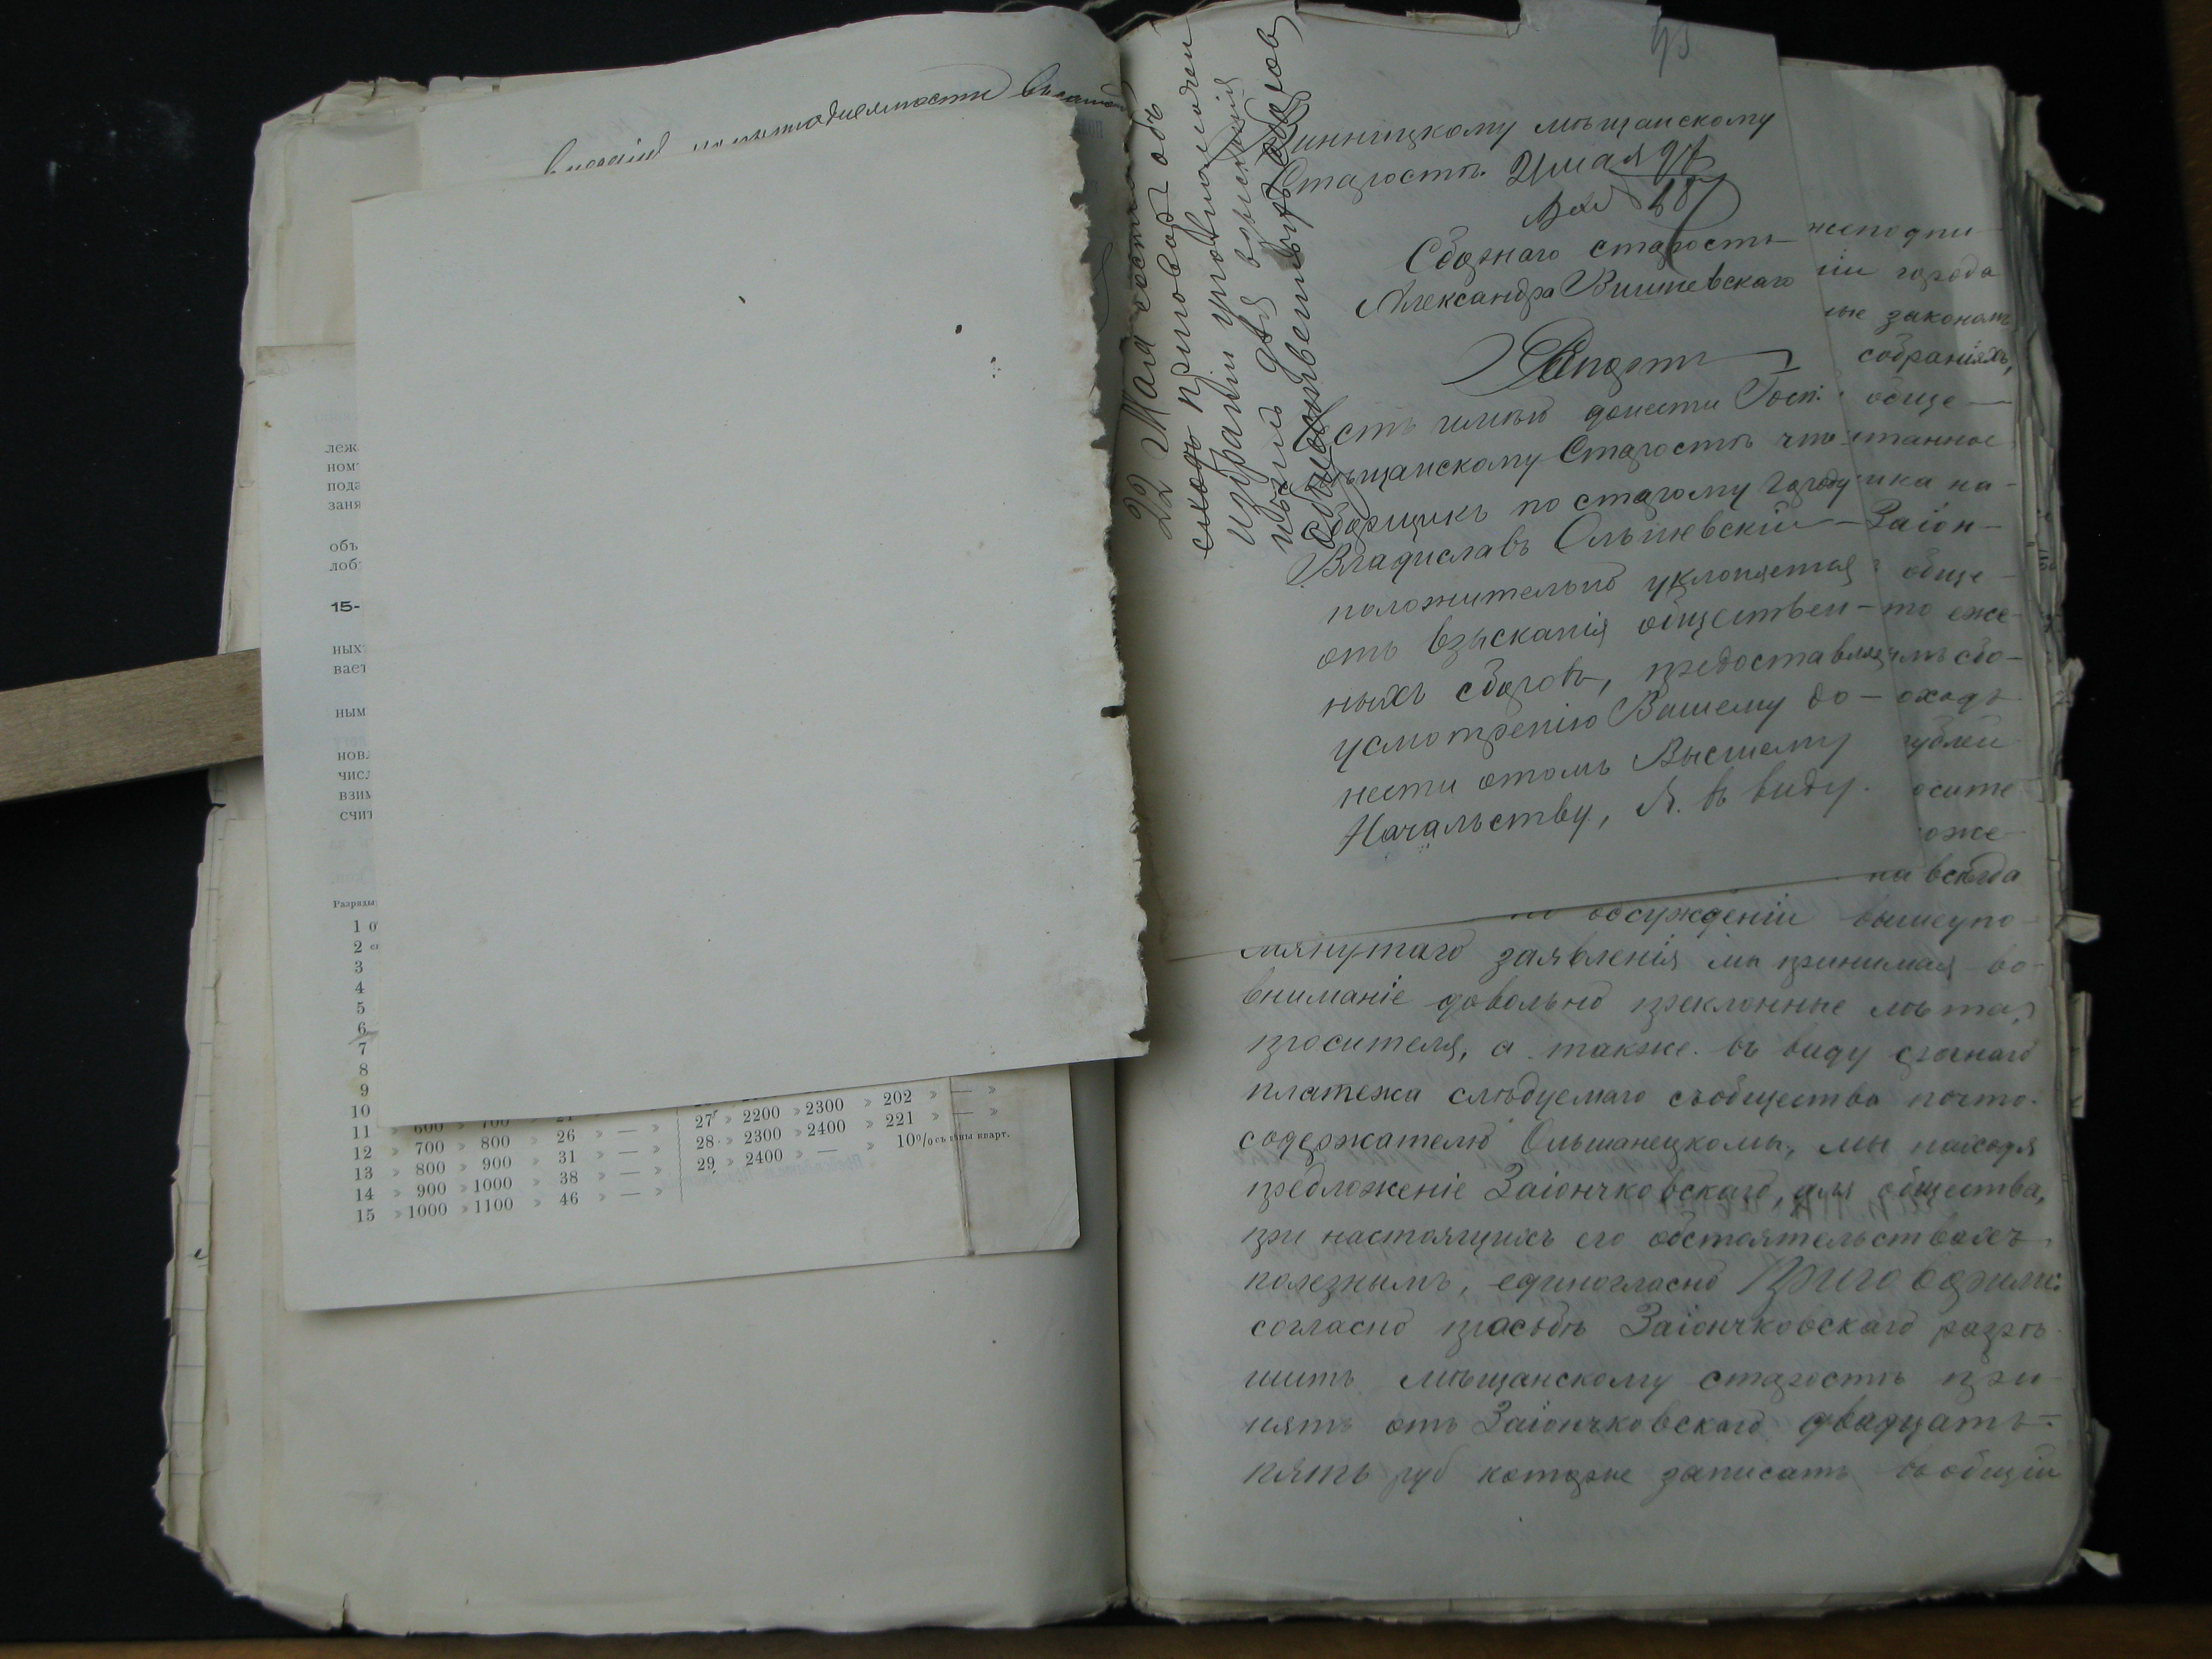 леж
ном
пода
заня
объ
лоб
15-
ных
вает
ным
нов
числ
взим
счит
Разряды
1
2
3
4
5
6
7
8
9
10
11 » 600 » 700
12 » 700 » 800 » 26 » — »
13 » 800 » 900 » 31 » — »
14 » 900 » 1000 » 38 » — »
15 » 1000 » 1100 » 46 » — »
27 » 2200 » 2300 » 202 » — »
28 » 2300 » 2400 » 221 » — »
29 » 2400 » — » 10% съ цѣны кварт.
22 Мая
сходъ приговоръ объ
избраніи уполномочен
для взысканія
общественныхъ сборовъ
Винницкому мѣщанскому
Старостѣ. 2 мая
Сборнаго старосты
Александра Вишневскаго
Рапортъ
Честь имѣю донести Госп.
Мѣщанскому Старостѣ что
Сборщикъ по старому городу
Владиславъ Ольшевскій
положительно уклоняется
отъ взысканія обществен-
ныхъ сборовъ, предоставляя
усмотренію Вашему до-
нести отомъ Высшему
Начальству, Я. въ виду.
жеподпи
города
ые закономъ
собраніяхъ,
обще
танное
ика на-
Заіон-
обще-
то еже-
сбо-
оходъ
рублей
осите
оже-
на всегда
обсужденіи вышеупо-
мянутаго заявленія мы принимая во-
вниманіе довольно преклонные лѣта,
просителя, а также. въ виду срочнаго
платежа слѣдуемаго съобщества почто-
содержателю Ольшанецкому, мы находя
предложеніе Заіончковскаго, для общества,
при настоящихъ его обстоятельствахъ
полезнымъ, единогласно Приговорили:
согласно просьбѣ Заіончковскаго разрѣ-
шить мѣщанскому старостѣ при-
нять отъ Заіончковскаго двадцать-
пять руб которые записать въобщій